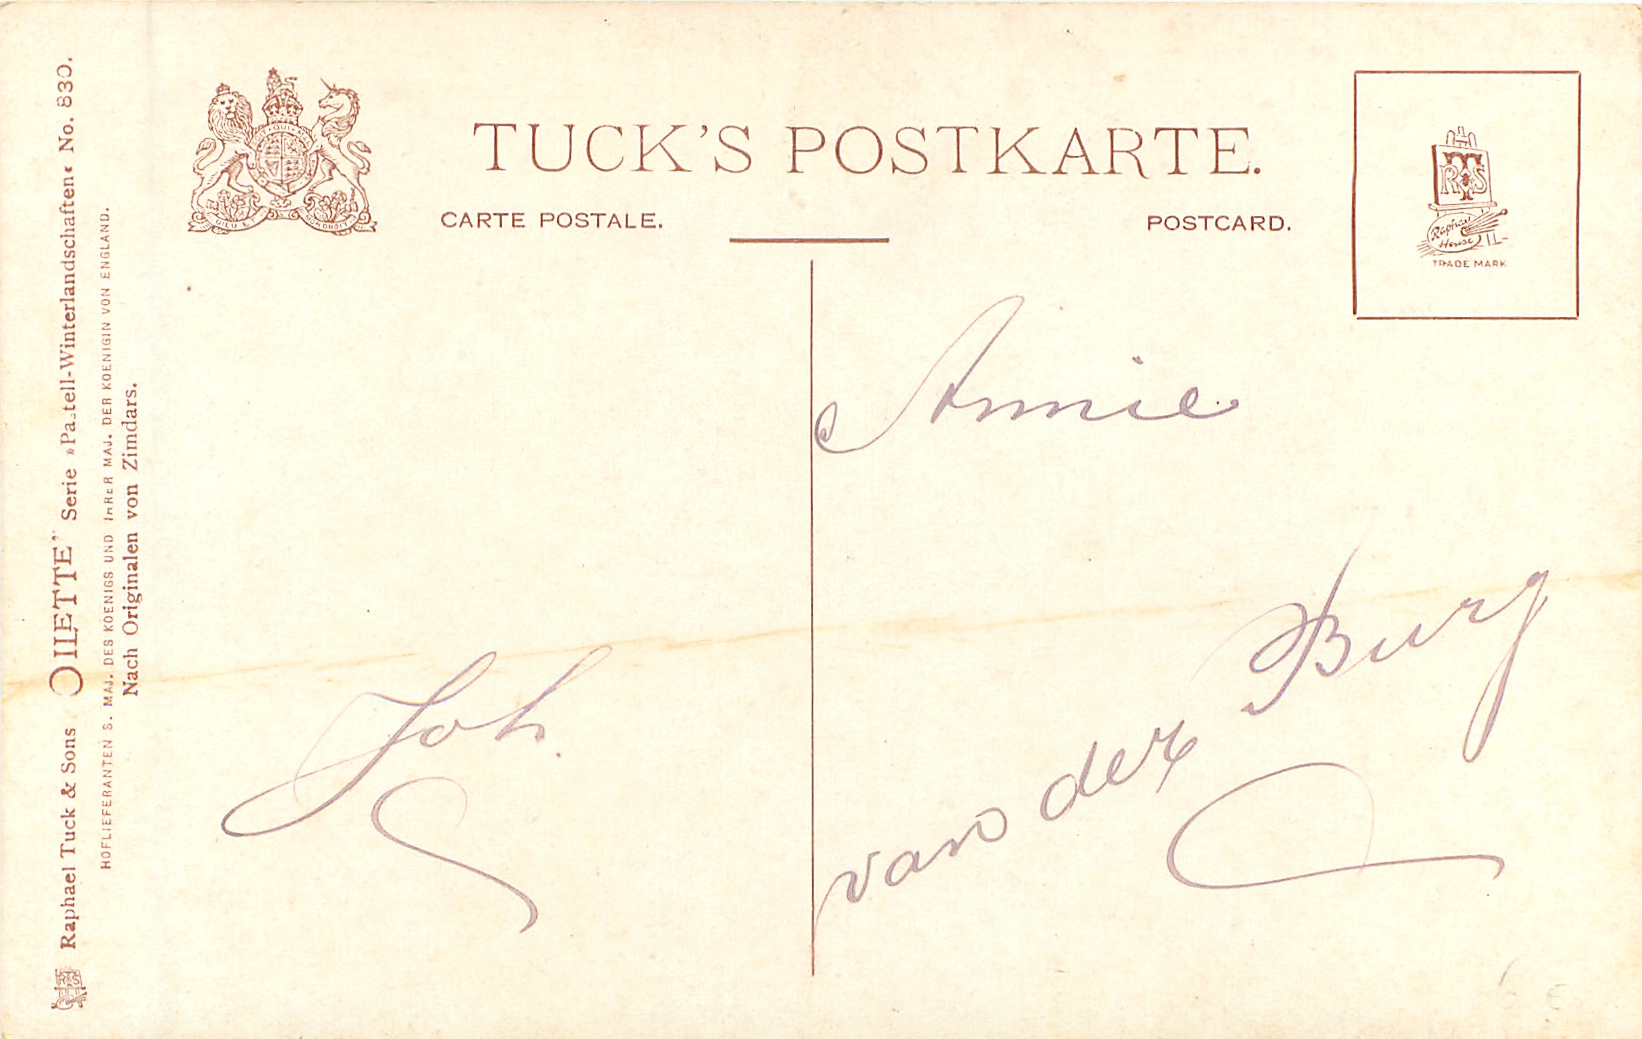 TUCK'S POSTKARTE.
CARTE POSTALE.
POSTCARD.
RTS
Raphael
House
TRADE MARK
Annie
van der Burg
Joh.
Raphael Tuck & Sons „OILETTE" Serie »Pastell-Winterlandschaften« No. 830.
HOFLIEFERANTEN S. MAJ. DES KOENIGS UND IHRER MAJ. DER KOENIGIN VON ENGLAND.
Nach Originalen von Zimdars.
6 €